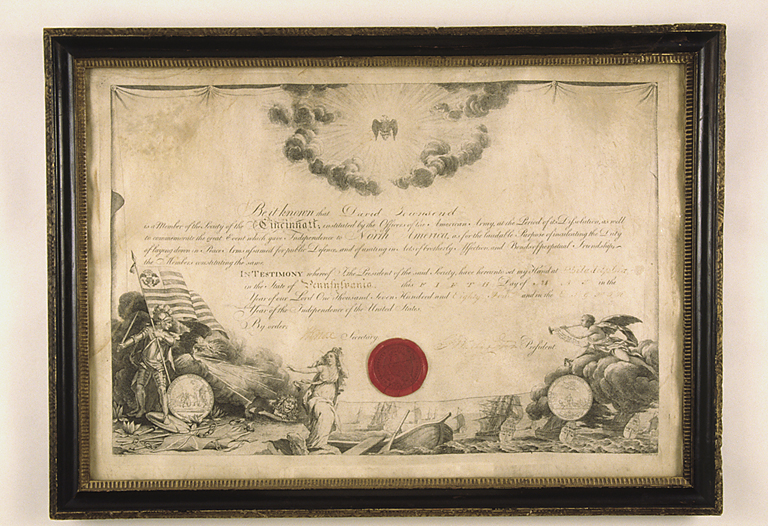 Be it known that David Townsend
is a Member of the Society of the Cincinnati, instituted by the Officers of the American Army, at the Period of its Dissolution, as well
to commemorate the great Event which gave Independence to North America, as for the laudable Purpose of inculcating the Duty
of laying down in Peace Arms assumed for public Defence, and of uniting in Acts of brotherly Affection, and Bonds of perpetual Friendship,
the Members constituting the same.
IN TESTIMONY whereof I, the President of the said Society, have hereunto set my Hand at Philadelphia
in the State of Pennsylvania this Day of in the
Year of our Lord One Thousand Seven Hundred and Eighty and in the
Year of the Independence of the United States.
By order,
Secretary. President.